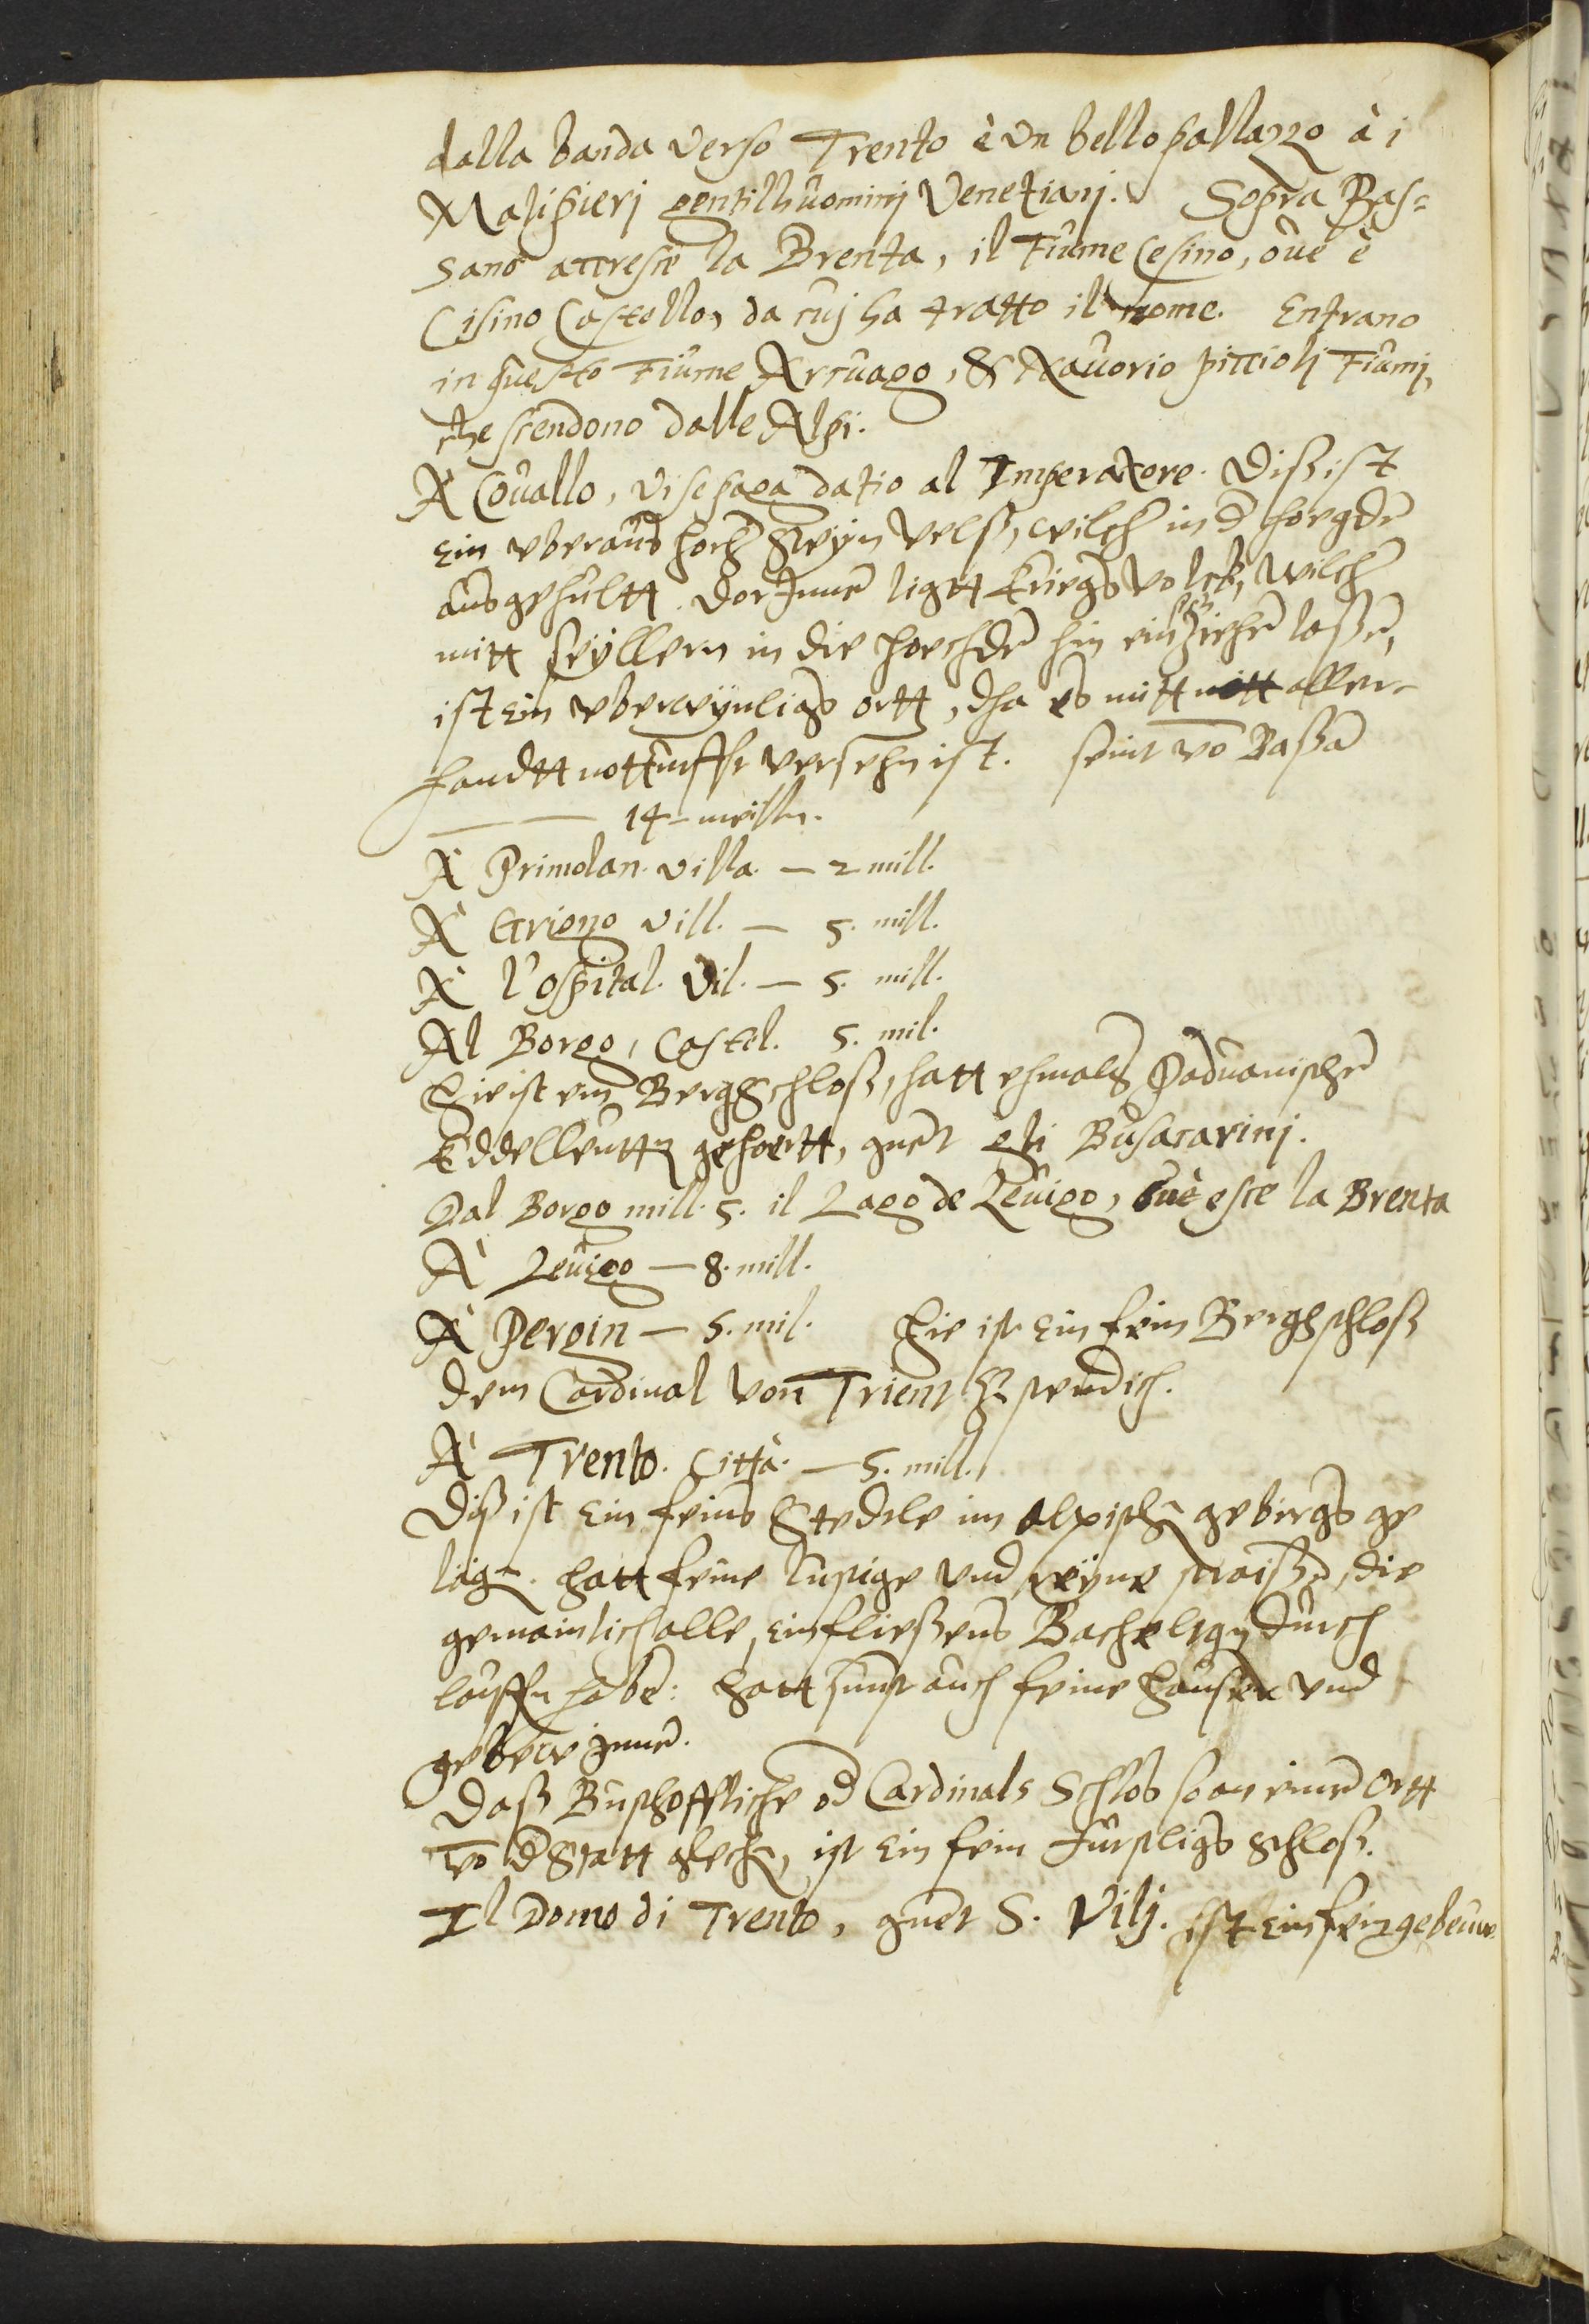 dalla banda verso Trento è un bello pallazzo à i
Malipierj gentilhuominj Venetianj. Sopra Bas=
sano accresce la Brenta, il Fiume Cesino, oue è
Cisino Castello, da cuj ha tratto il nome. Entrano
in questo Fiume Arcuago, & Nauorio piccioli Fiumj,
che scendono dalle Alpi.
A Couallo, vi se paga datio al Imperatore. Diß ist
ein vberaus hoch steyn velß, wilch in d hoegde
ausgehultt. Dor Inne ligtt kriegsvolck, wilch
mitt seyllern in die hoechde hin ein sich ziehe laße,
ist ein vberweynligs ortt, dha es mitt aller-
handtt notturfft versehn ist. seint vo Baßa
14 - meilln.
A Primolan. villa. - 2 mill.
A Grigno vill. - 5. mill.
A l'ospital. vil. - 5. mill.
Al Borgo, Castel. 5. mil.
Hie ist ein Bergschloß, hatt ehmals Paduanische
Eddelleuttn gehoertt, gnent gli Busacarinj.
Dal Borgo mill. 5. il Lago de Leuigo, oue esce la Brenta
A Leuigo - 8. mill.
A Pergin - 5. mil. Hie ist ein fein Bergschloß
dem Cardinal von Trient zustendich.
A Trento. Città. - 5. mill.
Diß ist ein feins Stedtle im alpischn gebirgs ge
legn. hatt feine lustige vnd reyne straiße, die
gemainlich alle, ein fließens Bachelign durch
lauffn habe: hatt sunst auch feine hauser vnd
gebew Inne.
Daß Bischoffliche od Cardinals Schlos so an eine ortt
vo d Statt glech, ist ein fein Furstligs schloß.
Il Domo di Trento, gnent S. Vilj. ist ein fein gebeuw.